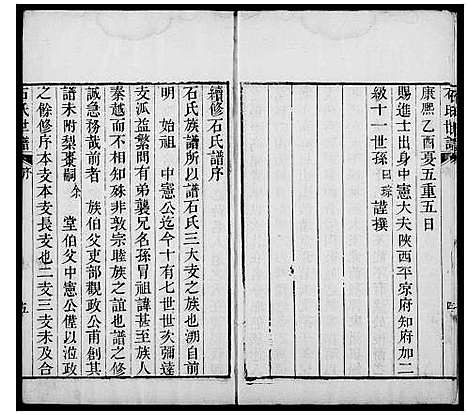 石氏世譜
四
康熙乙酉夏五重五日
賜進士出身中憲大夫陝西平涼府知府加二
級十一世孫曰琮謹撰
續修石氏譜序
石氏族譜所以譜石氏三大支之族也溯自前
明 始祖 中憲公迄今十有七世世次彌遠
支派益繁間有弟襲兄名孫冒祖諱甚至族人
秦越而不相知殊非敦宗睦族之誼也譜之修
誠急務哉前者 族伯父吏部觀政公甫創其
譜未附梨棗嗣余 堂伯父中憲公僅以涖政
之餘修序本支本支長支也二支三支未及合
石氏世譜 序 五